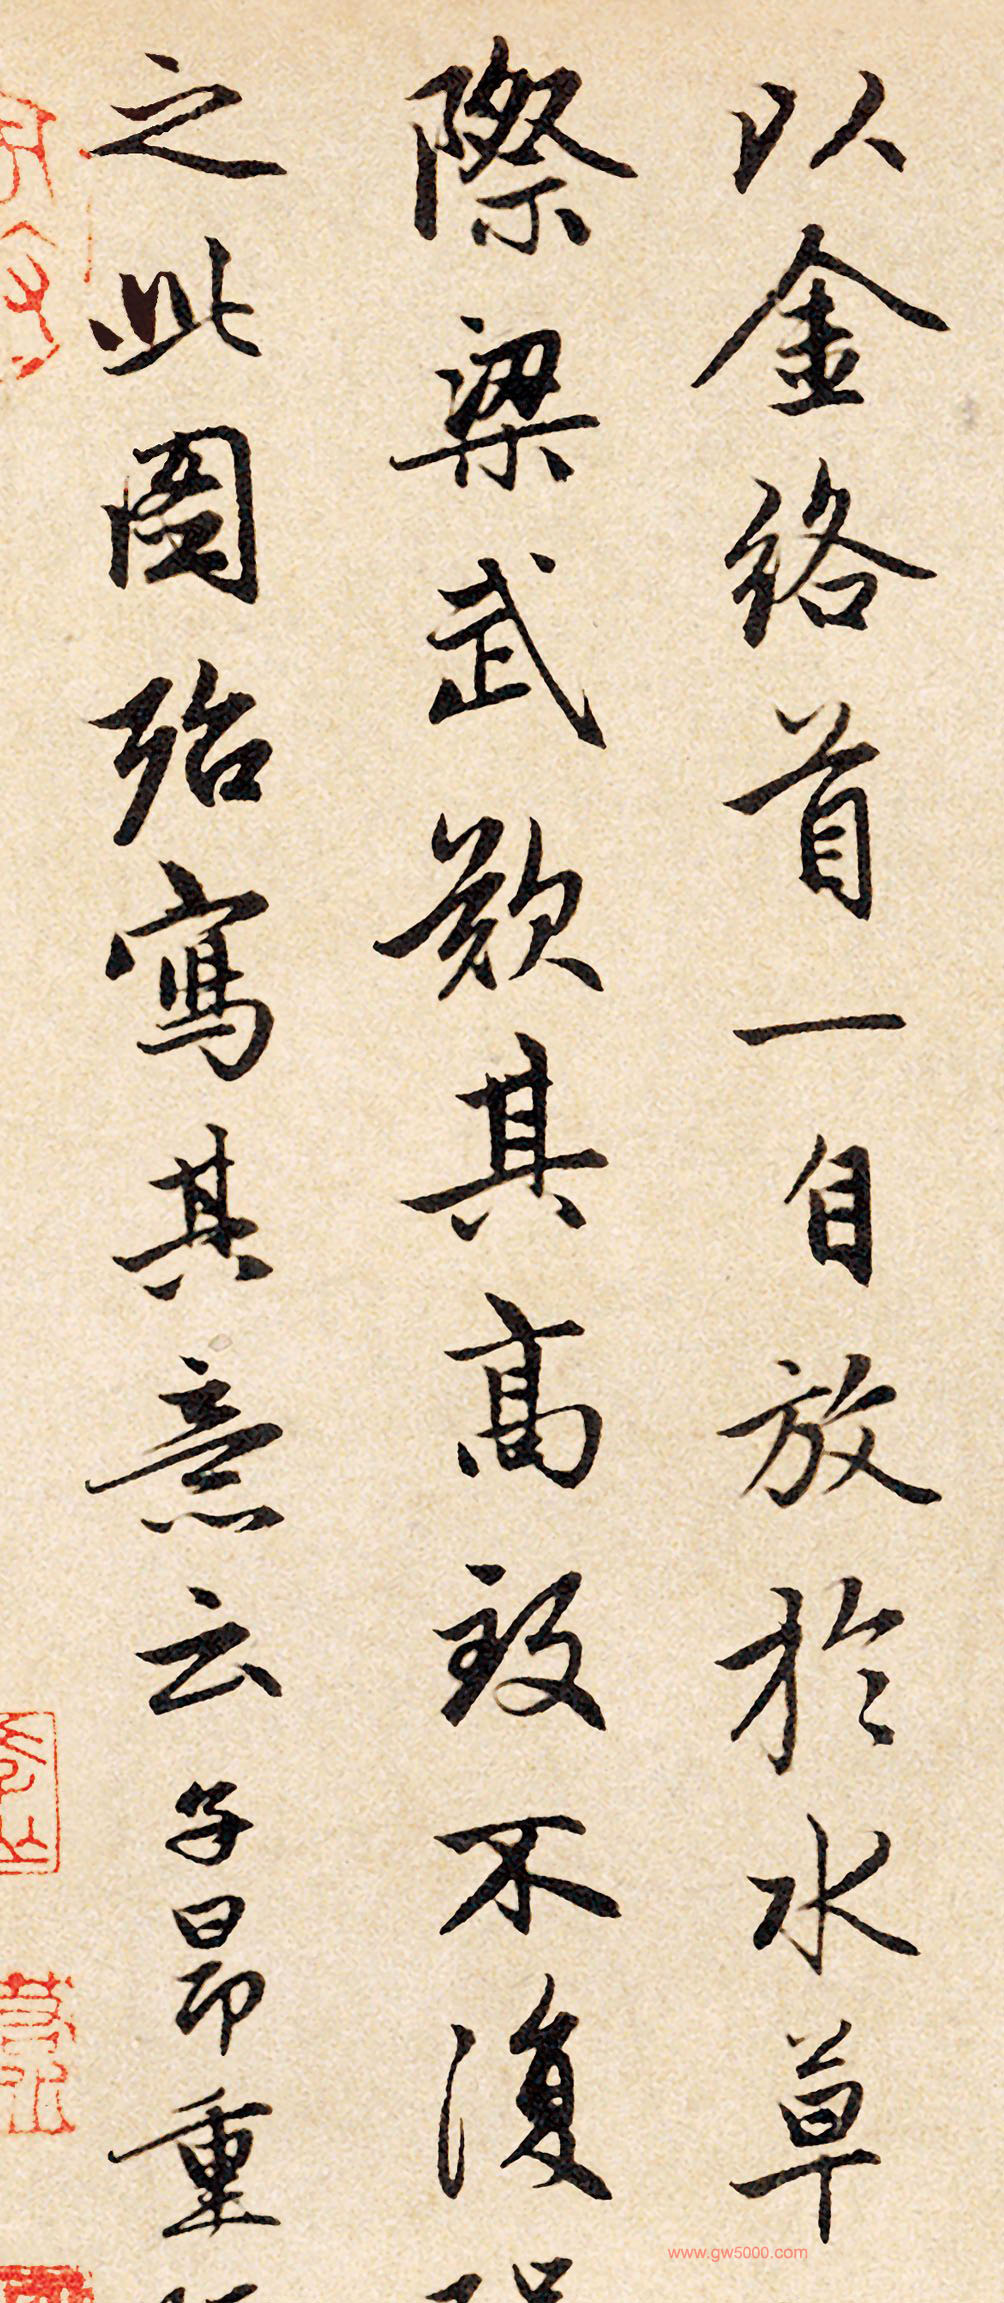 以金絡首一自放於水草
際梁武歎其高致不復
之此圖殆寫其意云子昂重
www.gw5000.com